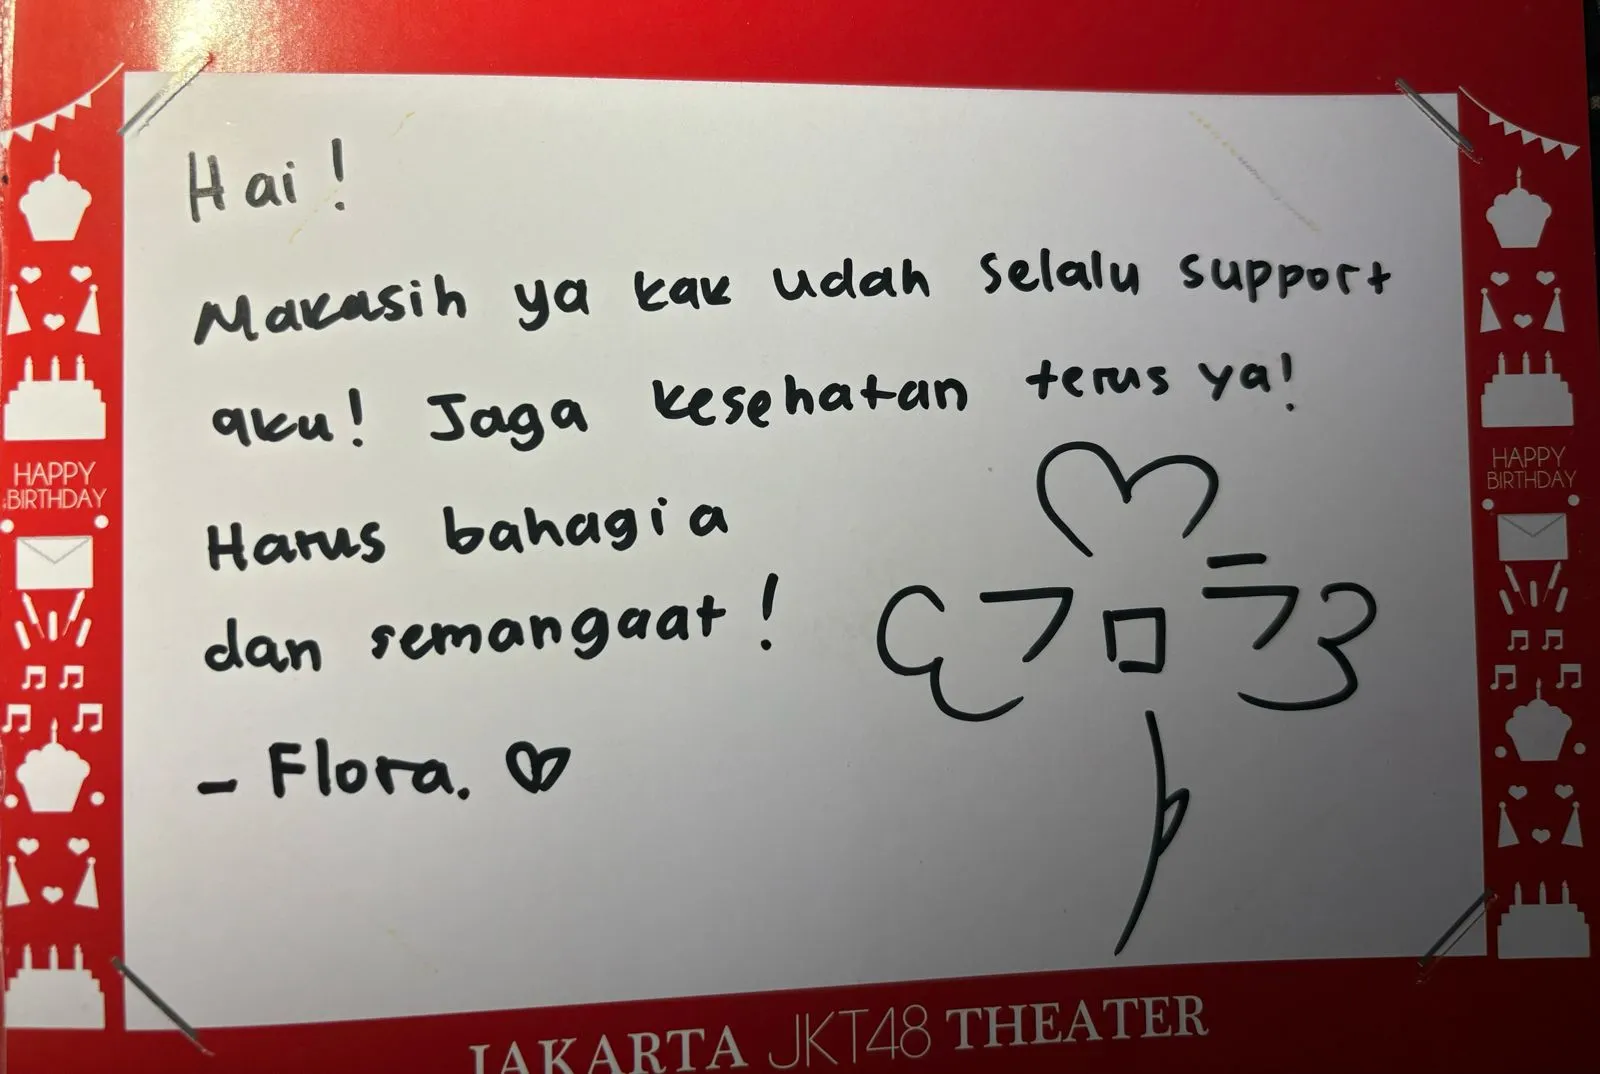 Hai!
Makasih ya kak udah selalu support
aku! Jaga kesehatan terus ya!
Harus bahagia
dan semangaat!
- Flora. ♡
フローラ
HAPPY
BIRTHDAY
HAPPY
BIRTHDAY
JAKARTA JKT48 THEATER